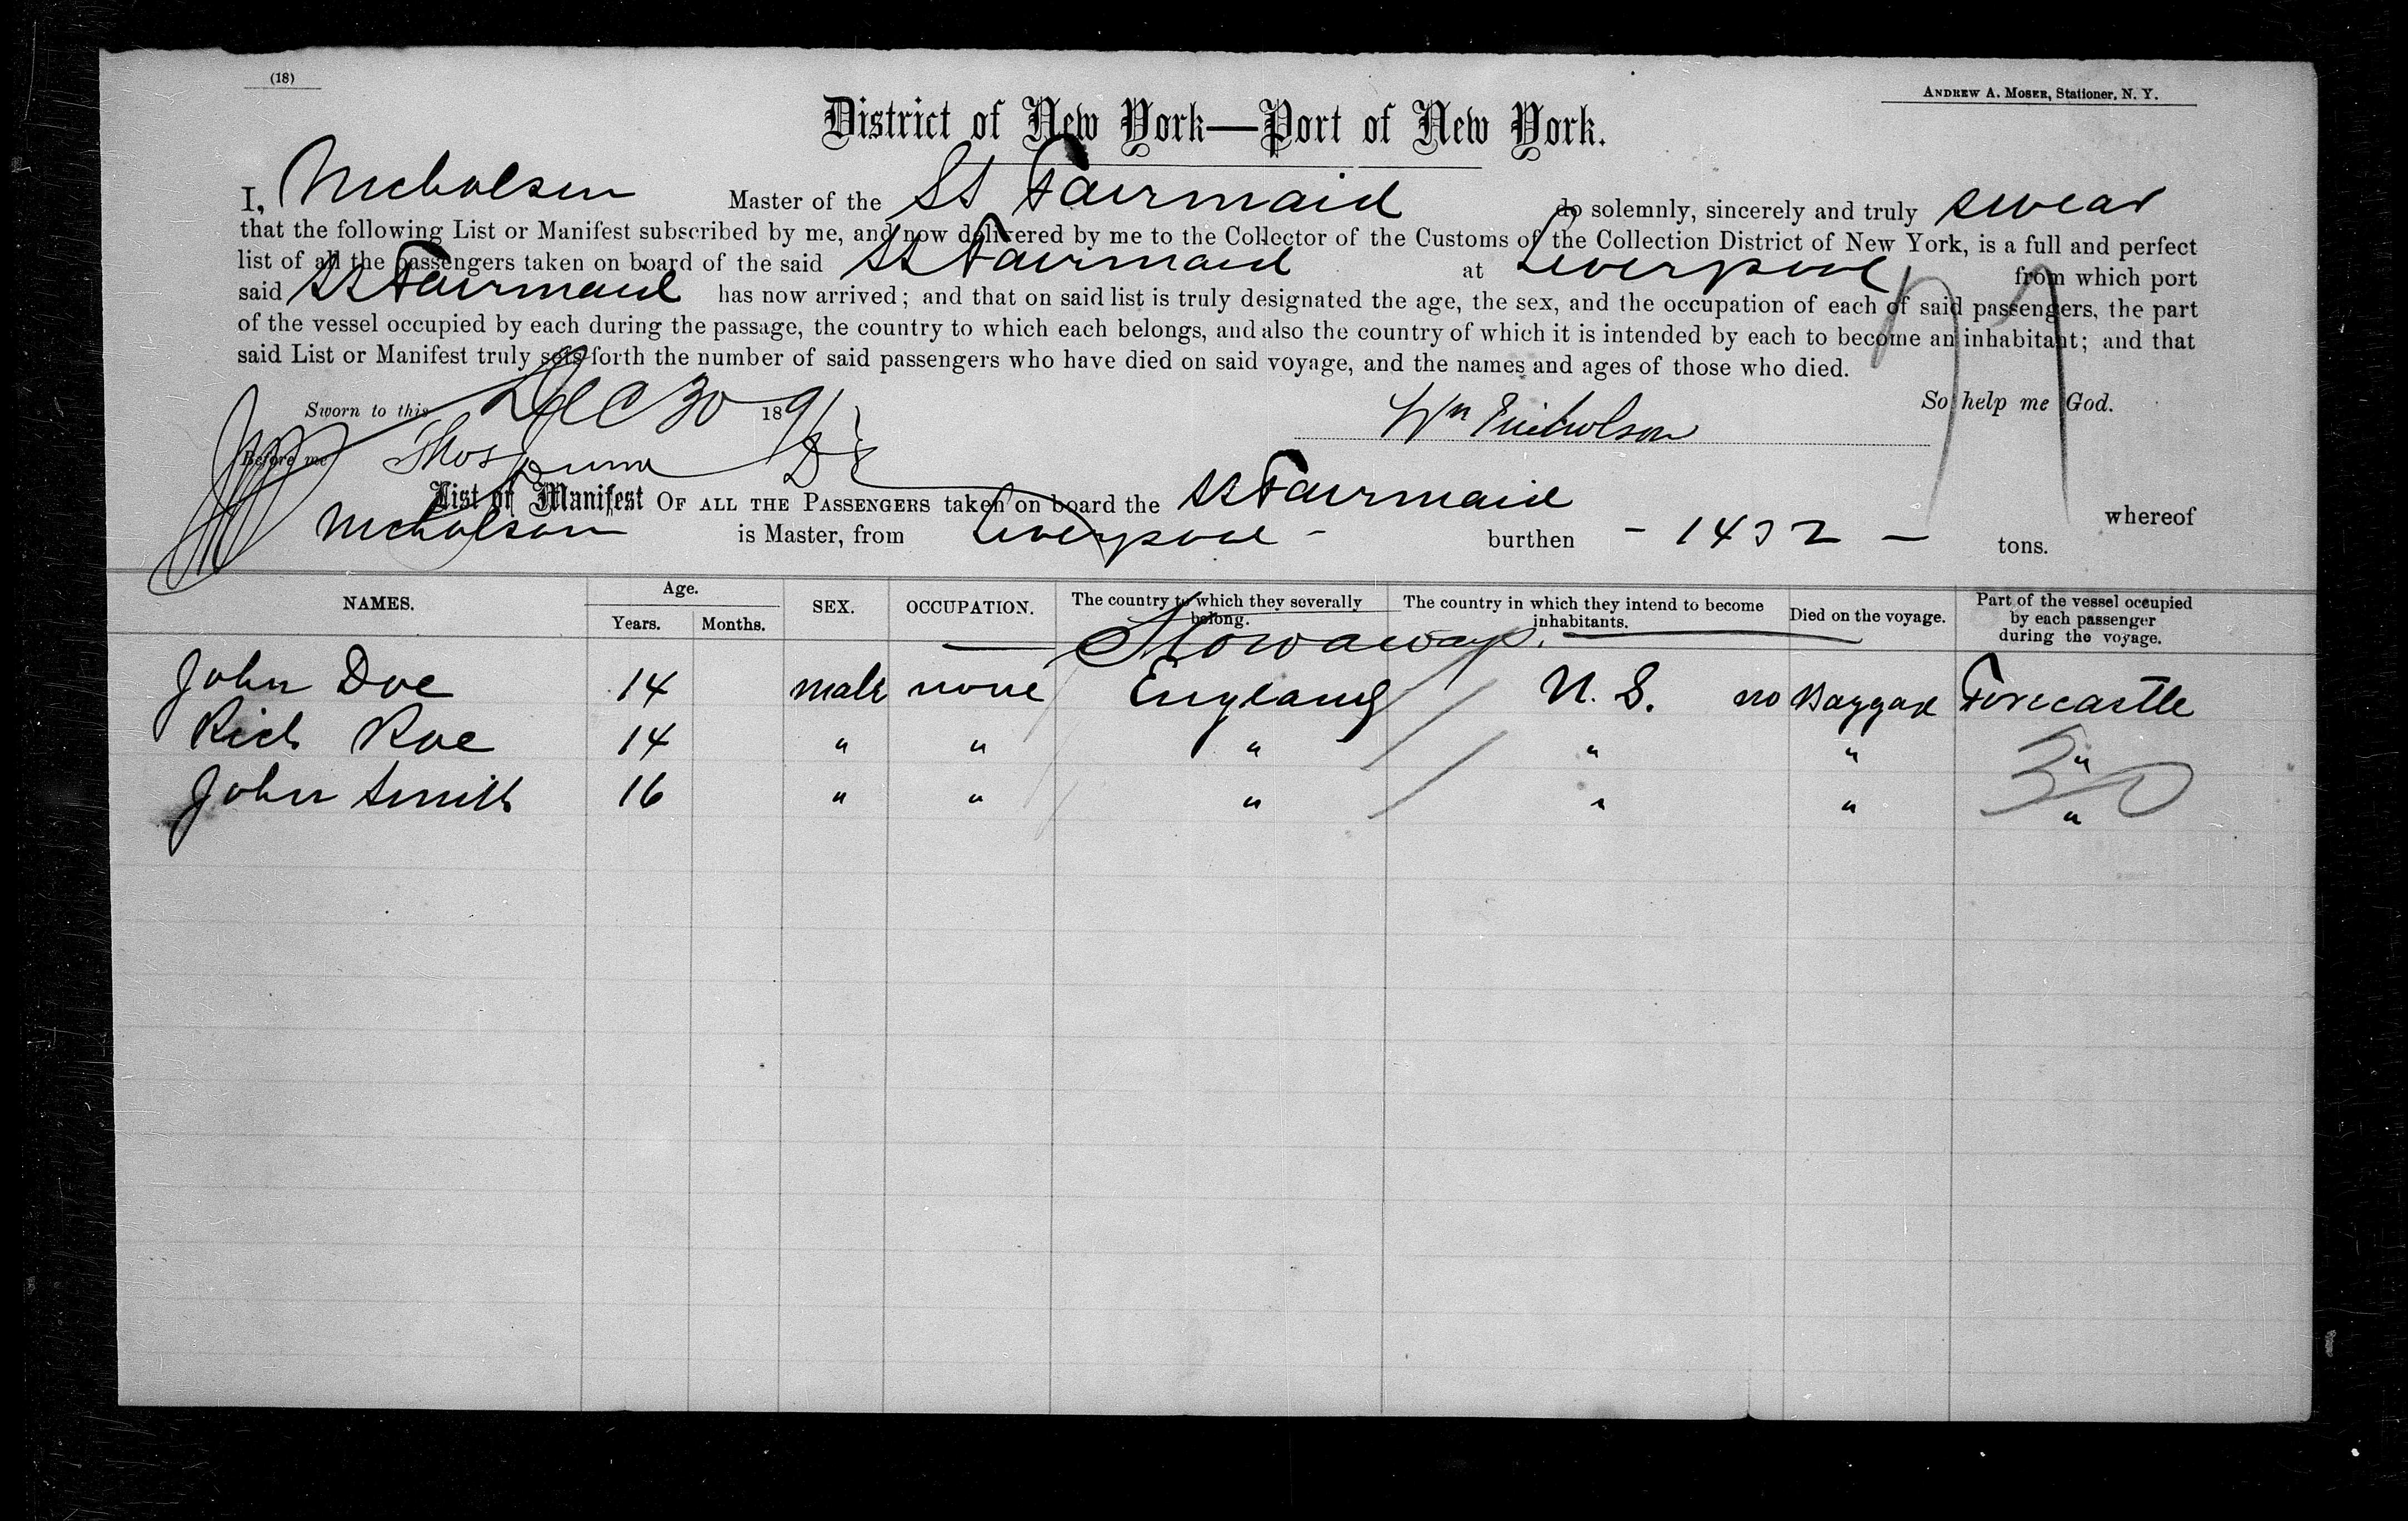 (18)
ANDREW A. MOSER, Stationer, N. Y.
District of New York—Port of New York.
I, Nicholson Master of the SS Fairmaid do solemnly, sincerely and truly swear
that the following List or Manifest subscribed by me, and now delivered by me to the Collector of the Customs of the Collection District of New York, is a full and perfect
list of all the passengers taken on board of the said SS Fairmaid at Liverpool from which port
said SS Fairmaid has now arrived; and that on said list is truly designated the age, the sex, and the occupation of each of said passengers, the part
of the vessel occupied by each during the passage, the country to which each belongs, and also the country of which it is intended by each to become an inhabitant; and that
said List or Manifest truly sets forth the number of said passengers who have died on said voyage, and the names and ages of those who died.
Sworn to this Dec 30 1891 So help me God.
Wm Nicholson
Before me Thos
List or Manifest OF ALL THE PASSENGERS taken on board the SS Fairmaid whereof
Nicholson is Master, from Liverpool - burthen - 1432 - tons.
NAMES. Age. Years. Months. SEX. OCCUPATION. The country to which they severally belong. The country in which they intend to become inhabitants. Died on the voyage. Part of the vessel occupied by each passenger during the voyage.
Stowaways.
John Doe 14 male none England U. S. no Baggage Forecastle
Rich Roe 14 " " " " " "
John Smith 16 " " " " " "
30